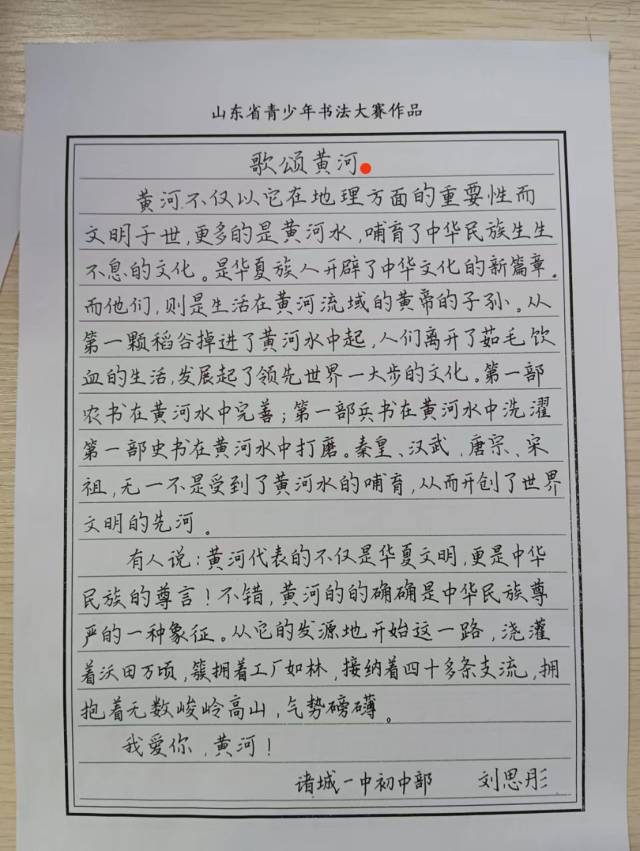 山东省青少年书法大赛作品
歌颂黄河
黄河不仅以它在地理方面的重要性而
文明于世,更多的是黄河水,哺育了中华民族生生
不息的文化。是华夏族人开辟了中华文化的新篇章.
而他们,则是生活在黄河流域的黄帝的子孙。从
第一颗稻谷掉进了黄河水中起,人们离开了茹毛饮
血的生活,发展起了领先世界一大步的文化。第一部
农书在黄河水中完善;第一部兵书在黄河水中洗濯
第一部史书在黄河水中打磨。秦皇、汉武、唐宗、宋
祖,无一不是受到了黄河水的哺育,从而开创了世界
文明的先河。
有人说:黄河代表的不仅是华夏文明,更是中华
民族的尊言!不错,黄河的的确确是中华民族尊
严的一种象征。从它的发源地开始这一路,浇灌
着沃田万顷,簇拥着工厂如林,接纳着四十多条支流,拥
抱着无数峻岭高山,气势磅礴。
我爱你,黄河!
诸城一中初中部 刘思彤